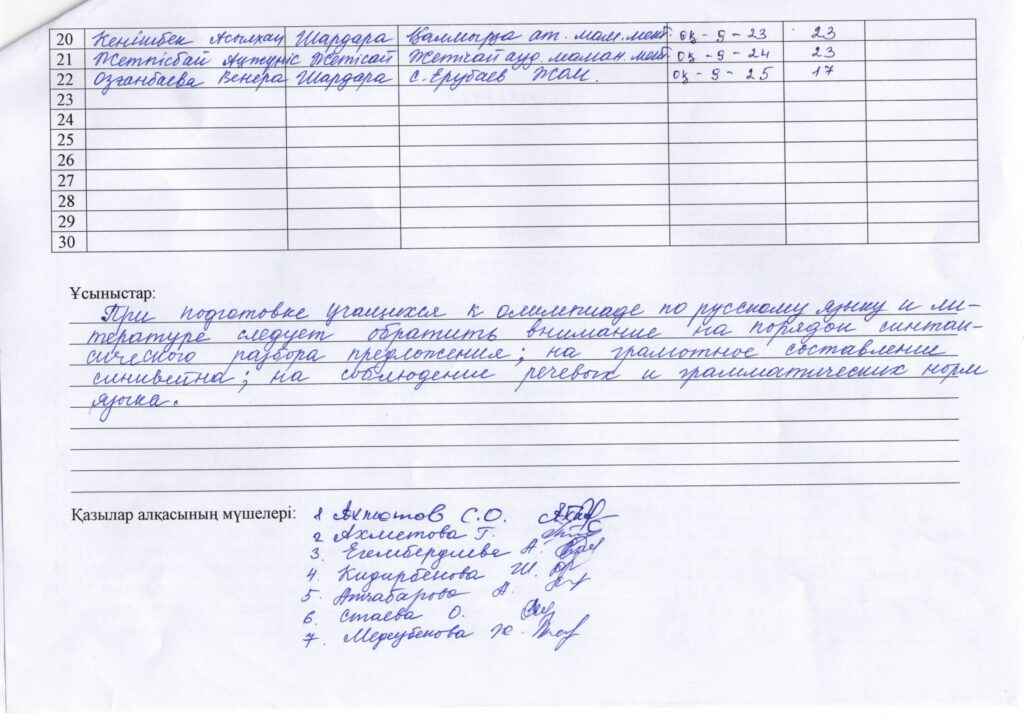 20 Кенішбек Асылхан Шардара ат. мам. мект. 09-9-23 23
21 Жетпісбай Жетісай Жетісай ауд. маман. мект. 09-9-24 23
22 Озганбаева Венера Шардара С. Ерубаев ЖОМ. 09-9-25 17
23
24
25
26
27
28
29
30
Ұсыныстар:
При подготовке учащихся к олимпиаде по русскому языку и ли-
тературе следует обратить внимание на порядок синтак-
сического разбора предложения; на грамотное составление
синквейна; на соблюдение речевых и грамматических норм
языка.
Қазылар алқасының мүшелері: 1 С.О.
2 Ахметова Г.
3. Егембердиева А.
4. Кидирбекова Ш.
5. Атчабарова А.
6. Стаева О.
7. Медеубекова Ж.